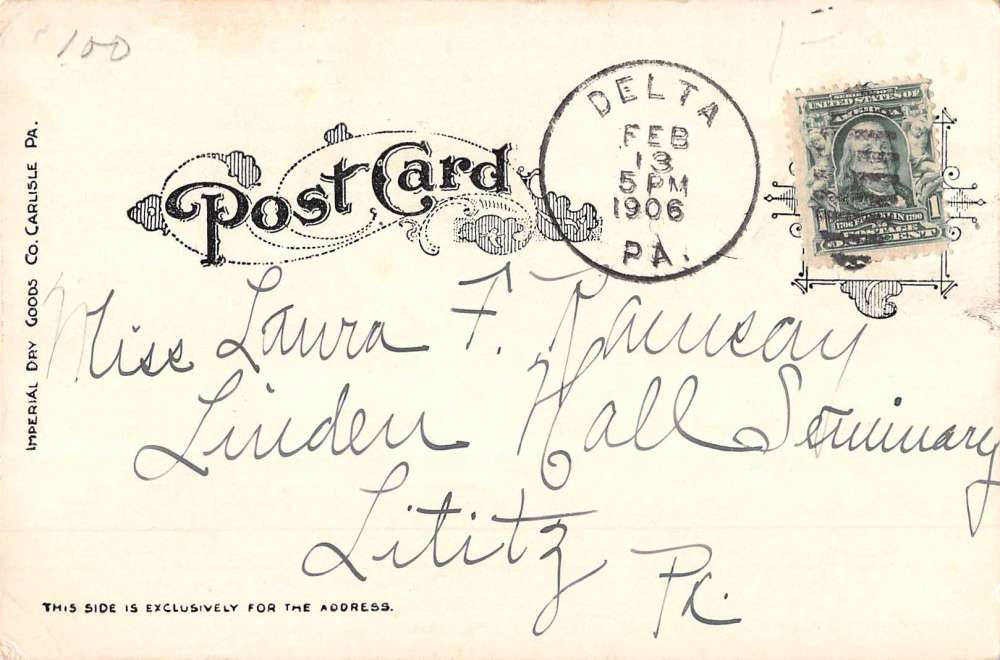 100
1-
DELTA
FEB
13
5 PM
1906
PA.
SERIES 1902
UNITED STATES OF
AMERICA
1706 FRANKLIN 1790
1 1
POSTAGE
ONE CENT
Post Card
IMPERIAL DRY GOODS CO. CARLISLE PA.
Miss Laura F. Ramsay
Linden Hall Seminary
Lititz
Pa.
THIS SIDE IS EXCLUSIVELY FOR THE ADDRESS.